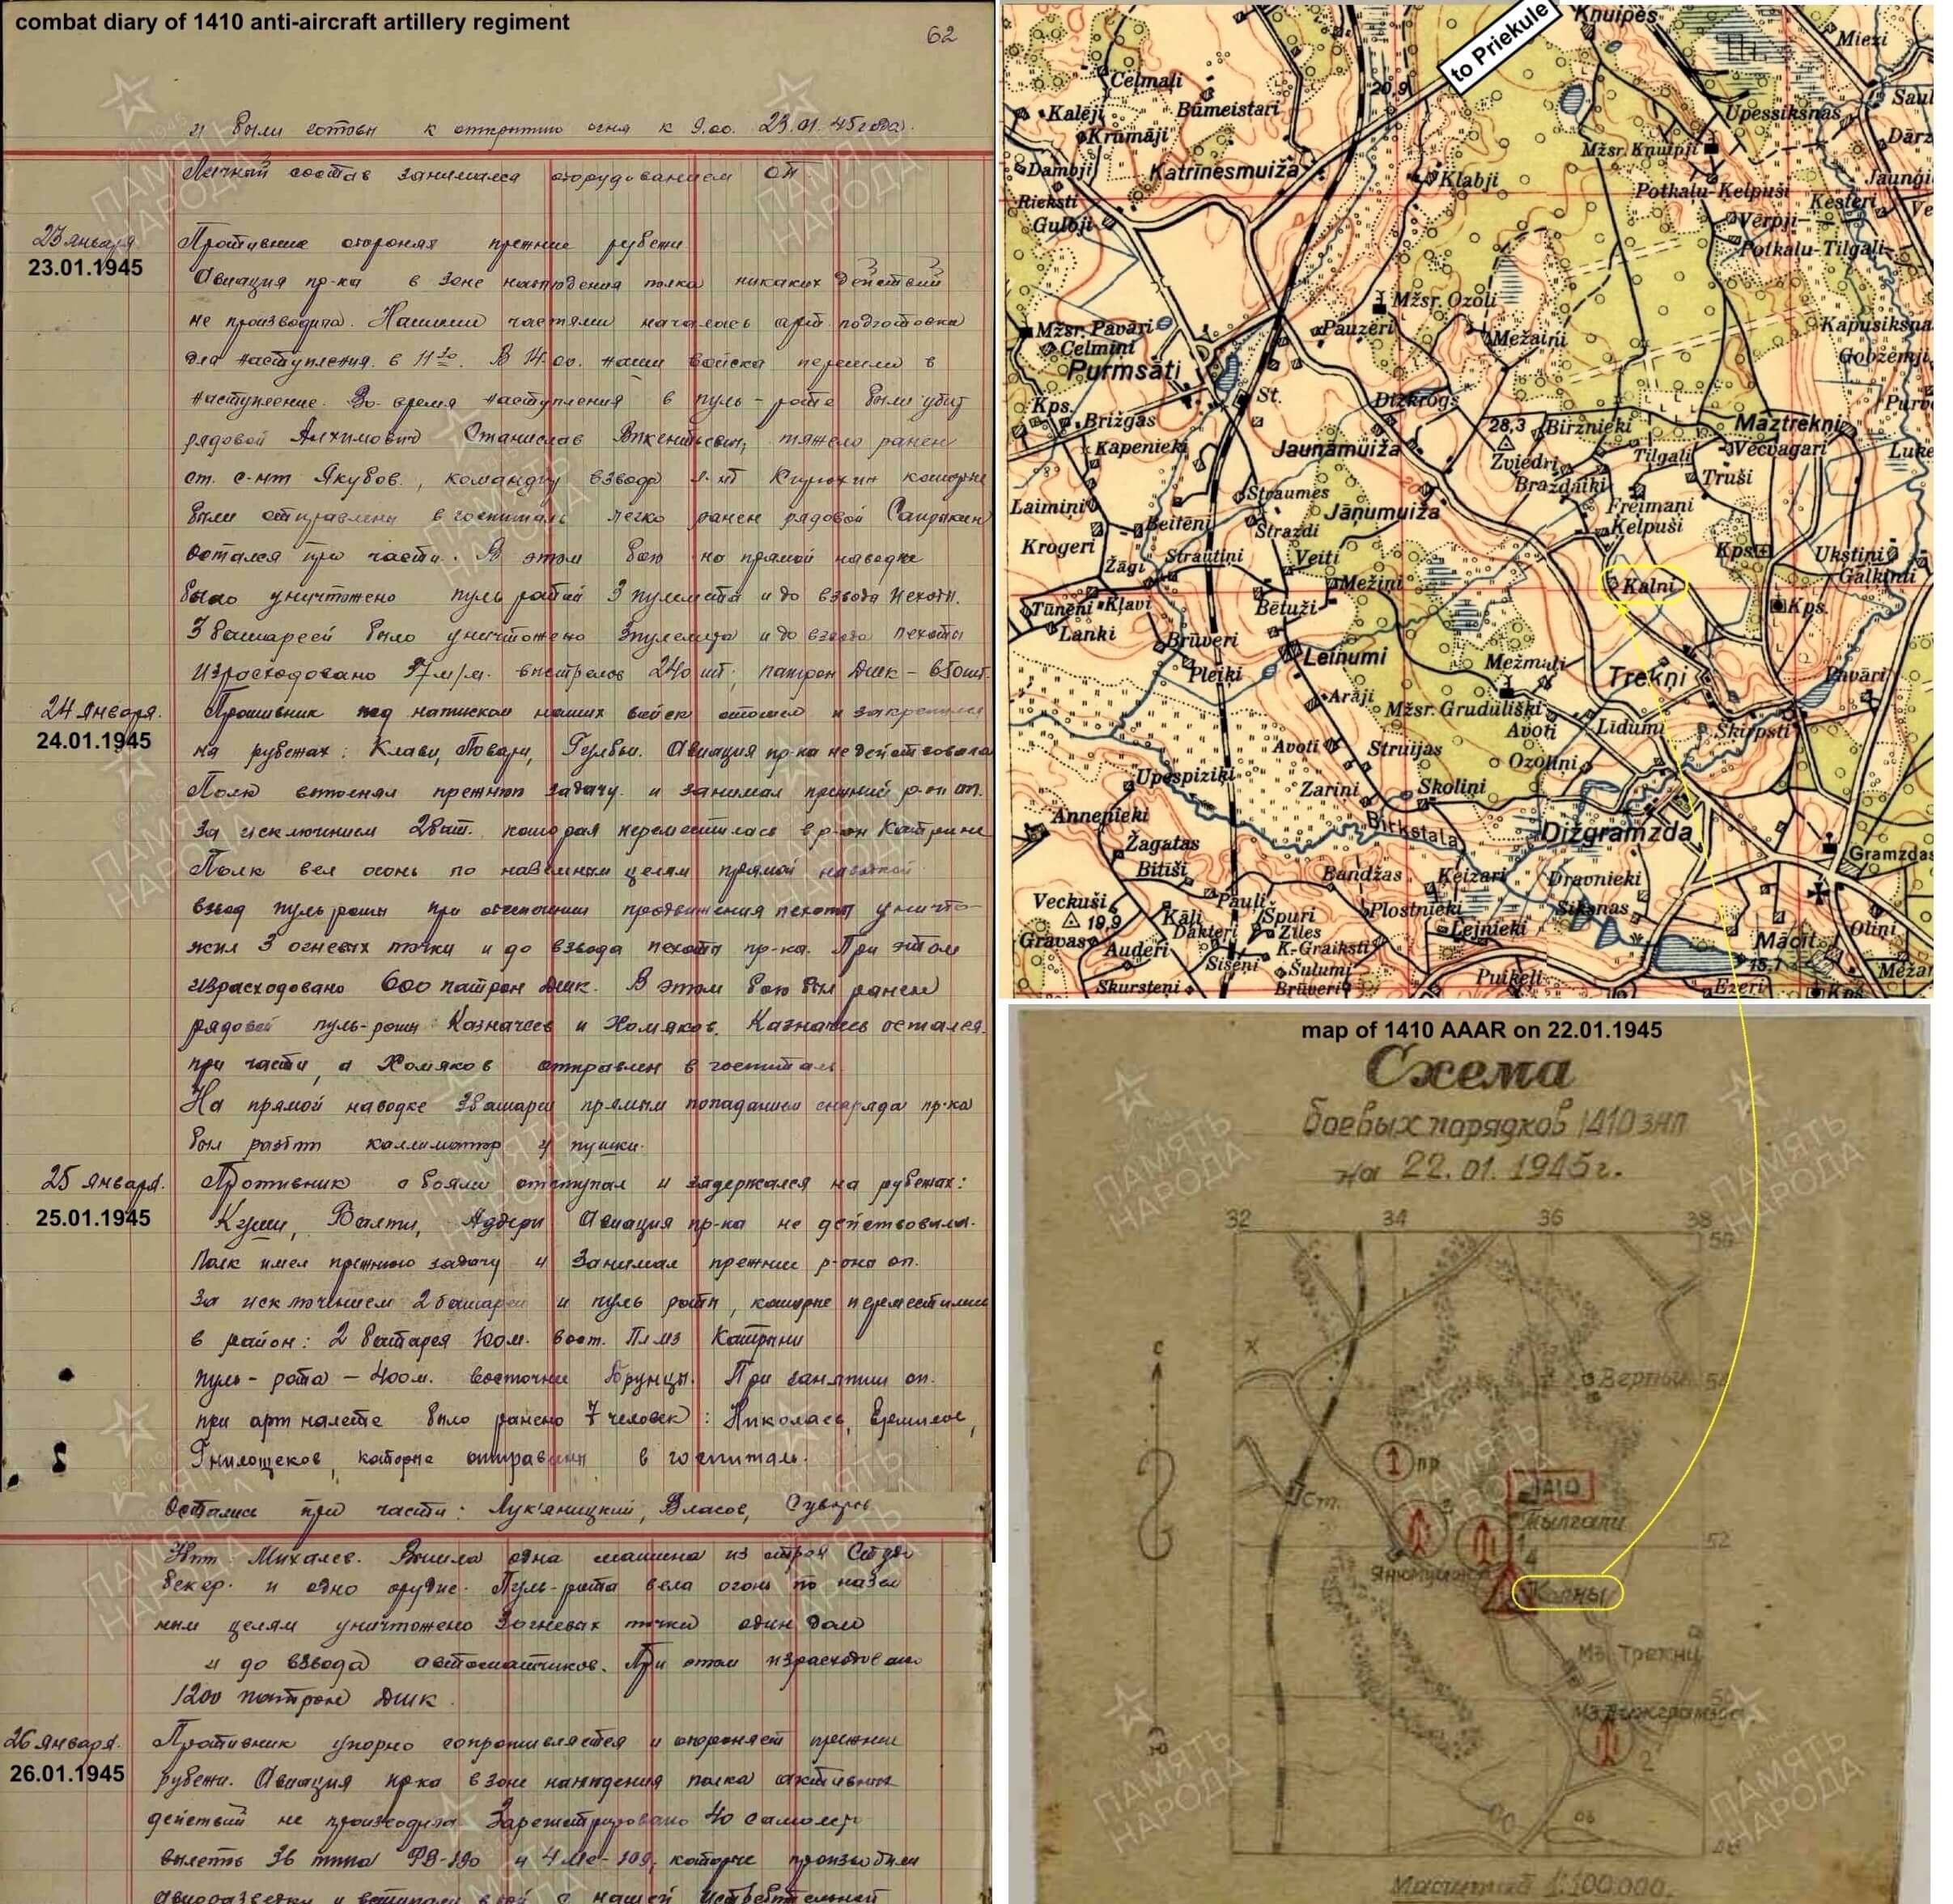 combat diary of 1410 anti-aircraft artillery regiment
62
и были готовы к открытию огня к 9.00. 23.01.45 года.
Личный состав занимался оборудованием ОП
23 января
23.01.1945
Противник оборонял прежние рубежи
Авиация пр-ка в зоне наблюдения полка никаких действий
не производила. Нашими частями началась арт. подготовка
для наступления в 11 30. В 14.00. наши войска перешли в
наступление. Во время наступления в пуль-роте были убит
рядовой Анхимович Станислав Викентьевич, тяжело ранен
ст. с-нт Якубов, командир взвода который
были отправлены в госпиталь легко ранен рядовой
остался при части. В этом бою на прямой наводке
было уничтожено пуль ротой 3 пулемета и до взвода пехоты.
3 батареей было уничтожено 3 пулемета и до взвода пехоты
Израсходовано 37 м/м. выстрелов 240 шт; патрон ДШК –
24 января.
24.01.1945
Противник под натиском наших войск отошел и закрепился
на рубежах: Клави, Повари, Гулбьи. Авиация пр-ка не действовала
Полк выполнял прежнюю задачу и занимал прежний р-он оп.
За исключением 2 бат. которая переместилась в р-он Катрине
Полк вел огонь по наземным целям прямой наводкой
взвод пуль роты при обеспечении продвижения пехоты уничто-
жил 3 огневых точки и до взвода пехоты пр-ка. При этом
израсходовано 600 патрон ДШК. В этом бою был ранен
рядовой пуль-роты Казначеев и Хомяков. Казначеев остался
при части, а Хомяков отправлен в госпиталь
На прямой наводке 3 батареи прямым попаданием снаряда пр-ка
был разбит коллиматор у пушки.
25 января.
25.01.1945
Противник с боями отступал и задержался на рубежах:
Валти, Аудери Авиация пр-ка не действовала.
Полк имел прежнюю задачу и занимал прежние р-она оп.
За исключением 2 батареи и пуль роты, которые переместились
в район: 2 батарея вост. Катрыни
пуль-рота – 400 м. восточнее Брунцы. При занятии оп.
при арт налете было ранено 7 человек: Николаев,
которые отправлен в госпиталь.
Остались при части: Лукяницкий, Власов, Суворов
Михалев. Вышла одна машина из строя Студе
бекер. и одно орудие. Пуль-рота вела огонь по назем
ным целям уничтожено 3 огневых точки один дом
и до взвода автоматчиков. При этом израсходовано
1200 патрон ДШК.
26 января.
26.01.1945
Противник упорно сопротивляется и обороняет прежние
рубежи. Авиация пр-ка в зоне наблюдения полка активных
действий не производила Зарегистрировано 40 самолето
вылеты 36 типа ФВ-190 и 4 Ме-109, которые производили
авиоразведку и вступали в бой с нашей истребительной
to Priekule
Knuipes
Miezi
Celmali
Kalēji
Būmeistari
20,9
Upessiksnas
Krūmāji
Mžsr. Knuipji
Dambji
Katrīnesmuiža
Klabji
Rieksti
Potkalu-Kelpuši
Gulbji
Vērpji
Ķesteri
Potkalu-Tilgali
Mžsr. Ozoli
Mžsr. Pāvari
Pauzeri
Celmiņi
Mežaiņi
Purmsāti
St.
Dīzkrogs
Kps.
Brižgas
28,3
Biržnieki
Maztrekņi
Kapenieki
Jaunamuiža
Zviedri
Tilgali
Vecvagari
Brazdaiki
Truši
Straumes
Laimiņi
Jāņumuiža
Freimani
Beitēni
Strazdi
Kelpuši
Krogeri
Strautiņi
Veiti
Kps.
Ukstiņi
Žagi
Mežiņi
Kalni
Galkinti
Tūneni
Klavi
Betuži
Kps.
Lanki
Brūveri
Leinumi
Mežmali
Trekņi
Pāvari
Plejki
Arāji
Mžsr. Grudulišķi
Avoti
Līdumi
Šķirpsti
Avoti
Struijas
Ozoliņi
Upespiziķi
Zariņi
Skoliņi
Annenieki
Birkstala
Dižgramzda
Žagatas
Bitiši
Bandžas
Ķeizari
Dravnieki
Gramzdas
Veckuši
19,9
Pauļi
Plostnieki
Siksnas
Kāļi
Špuri
Gravas
Dakteri
Ziles
Lejnieki
Mācit.
Oliņi
Auderi
K.-Graiksti
Siseņi
Šulumi
Puiķeli
Skursteņi
Brūveri
Ezeri
Kps.
map of 1410 AAAR on 22.01.1945
Схема
боевых порядков 1410 зап
на 22.01.1945г.
32 34 36 38
С
Верпьи
пр
1410
Ст.
Тылгали
52
4
Калны
Мз. Трекни
2
Ю
Масштаб 1:100000.
ПАМЯТЬ
НАРОДА